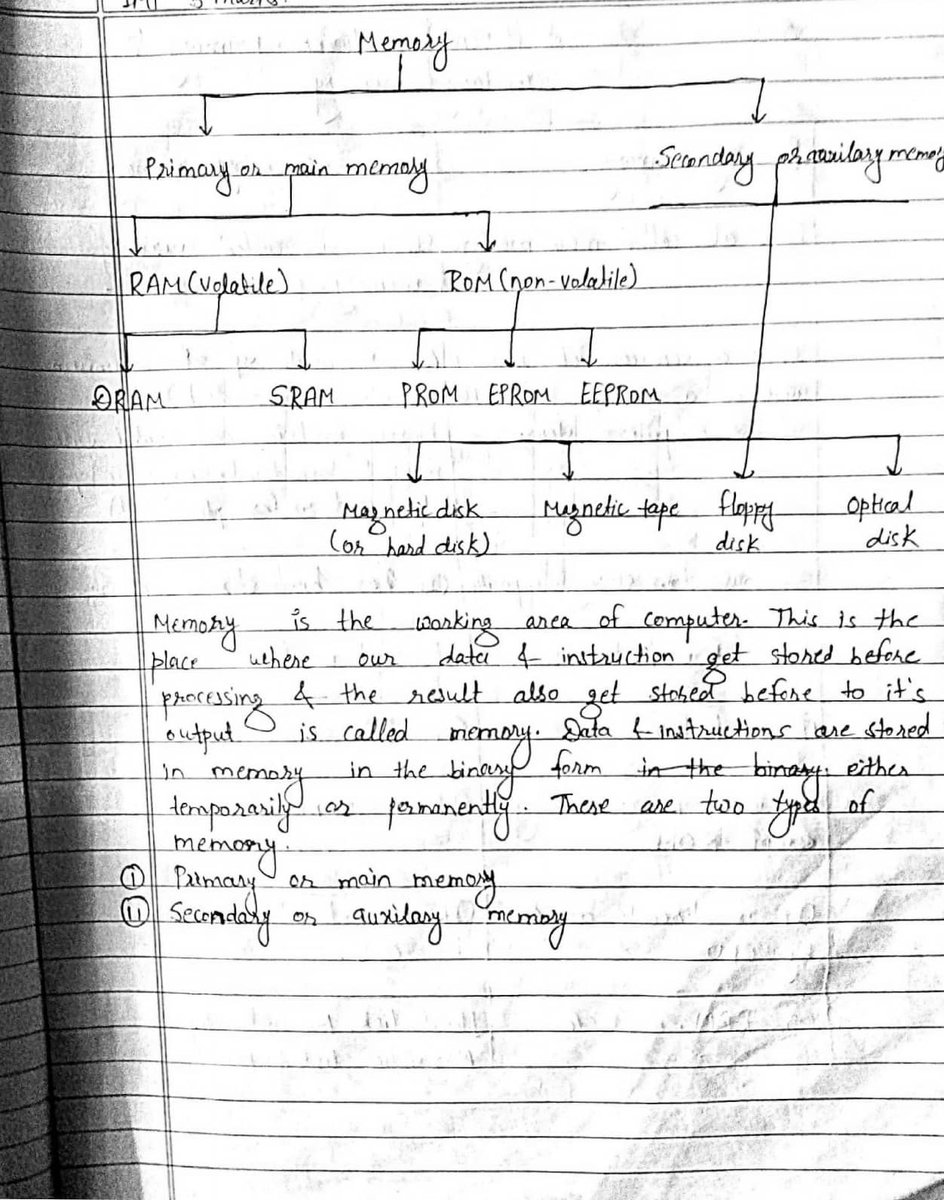 Memory
Primary or main memory
Secondary or auxilary memory
RAM (volatile)
ROM (non-volatile)
DRAM
SRAM
PROM
EPROM
EEPROM
Magnetic disk
(or hard disk)
Magnetic tape
floppy
disk
Optical
disk
Memory is the working area of computer. This is the
place where our data & instruction get stored before
processing & the result also get stored before to it's
output is called memory. Data & instructions are stored
in memory in the binary form in the binary. either
temporarily or permanently. There are two types of
memory.
(i) Primary or main memory
(ii) Secondary or auxilary memory